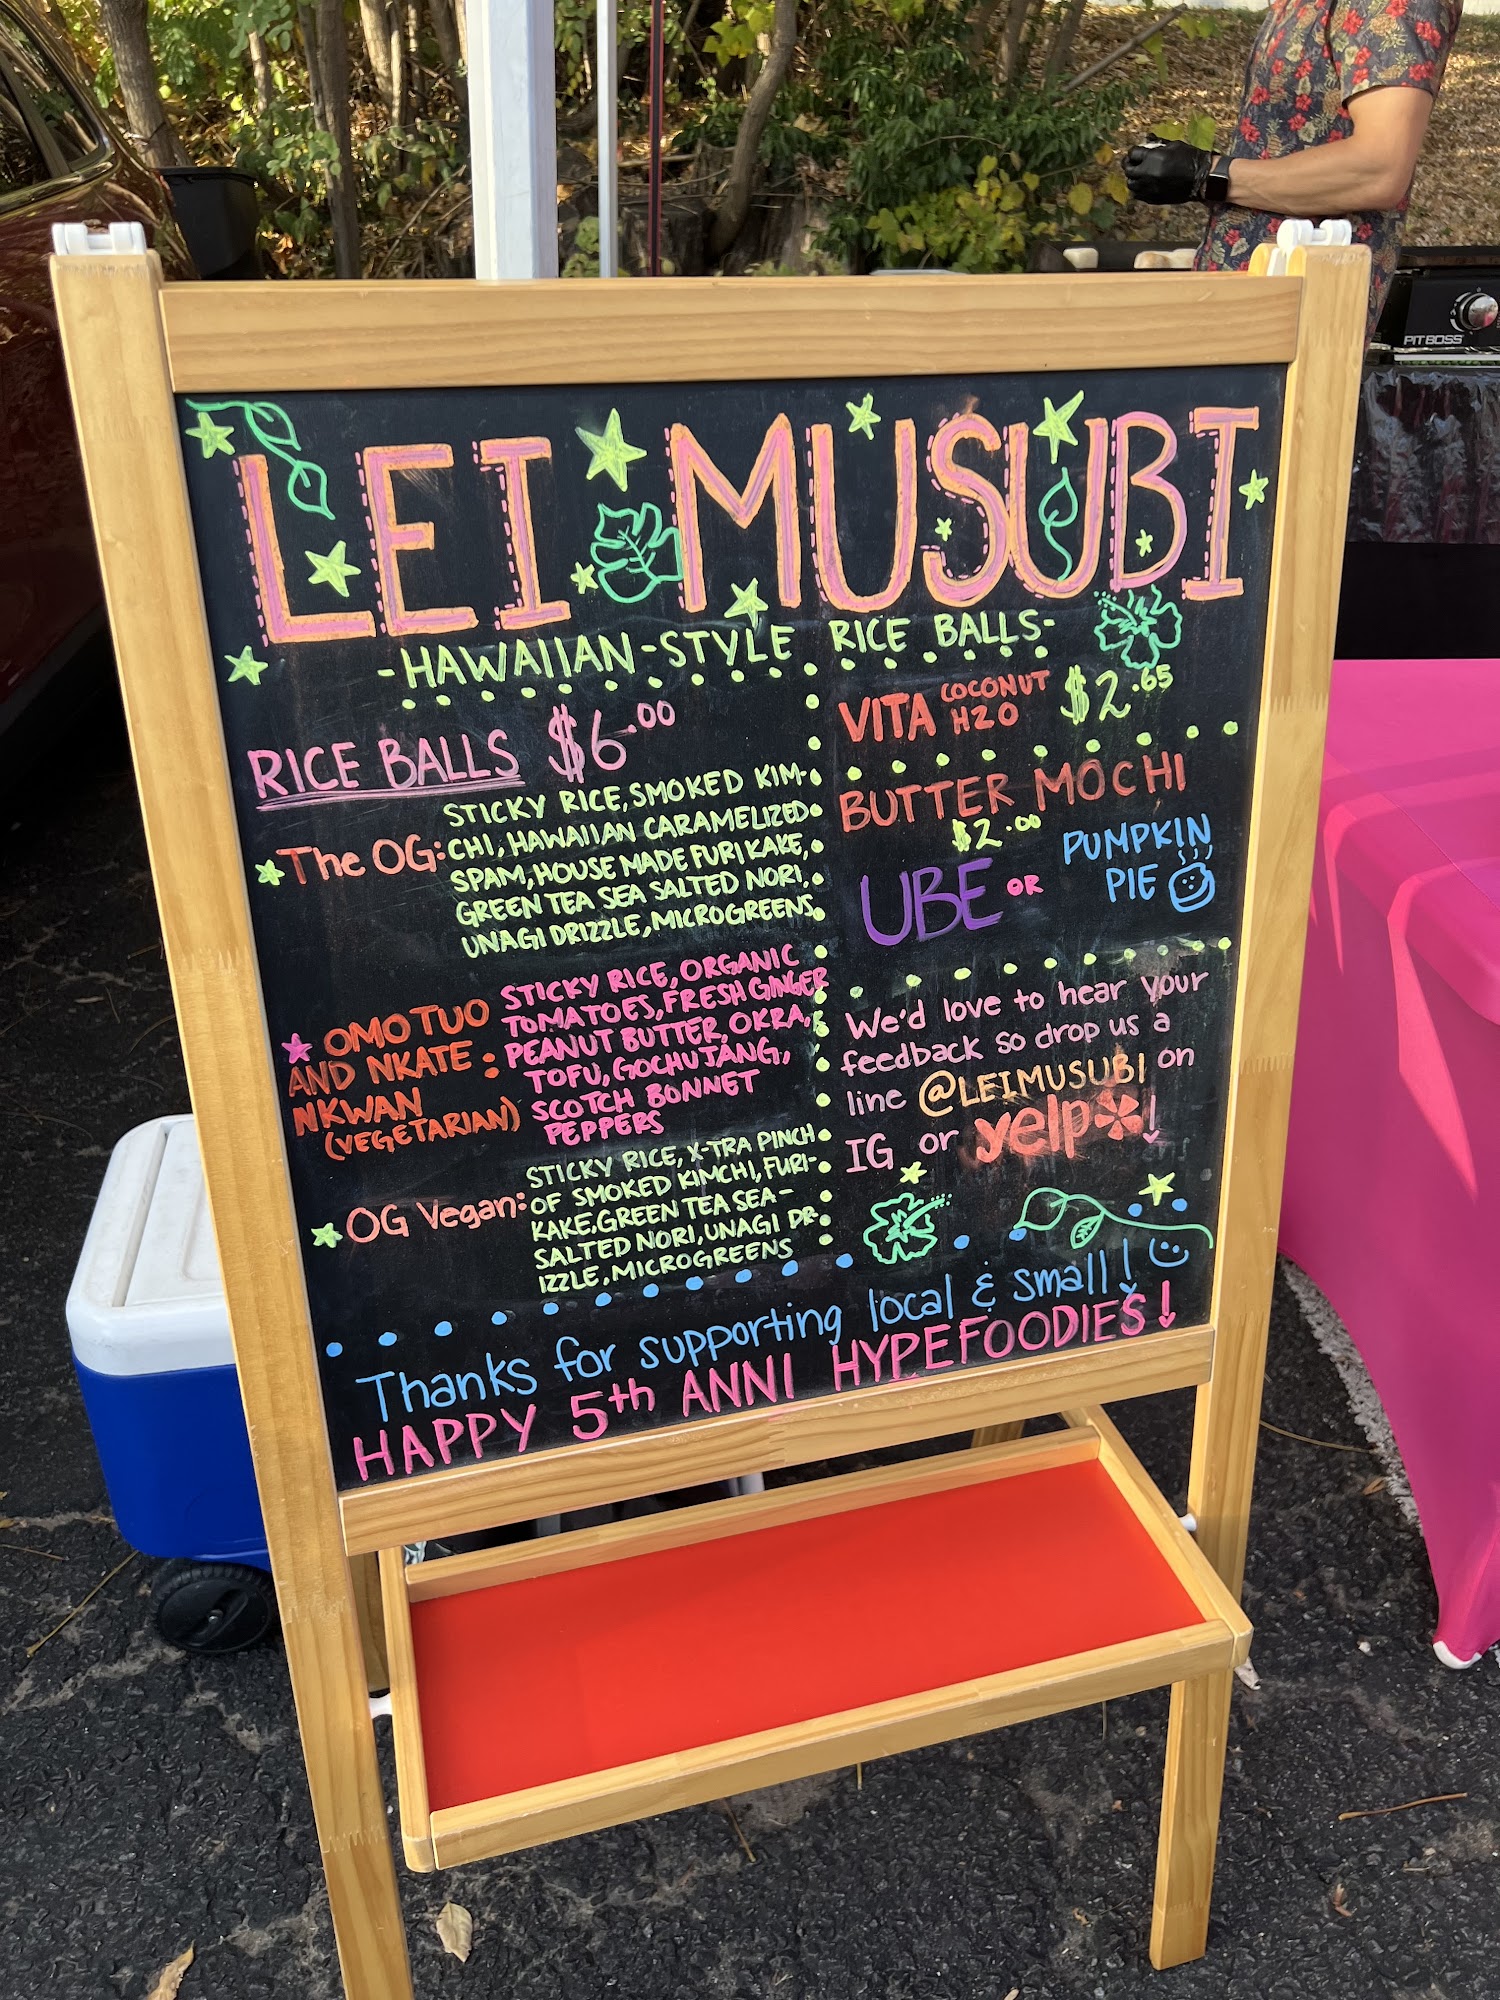 LEI MUSUBI
-HAWAIIAN-STYLE RICE BALLS-
RICE BALLS $6.00
The OG:
STICKY RICE, SMOKED KIM-
CHI, HAWAIIAN CARAMELIZED
SPAM, HOUSE MADE FURIKAKE,
GREEN TEA SEA SALTED NORI,
UNAGI DRIZZLE, MICROGREENS
OMO TUO
AND NKATE :
NKWAN
(VEGETARIAN)
STICKY RICE, ORGANIC
TOMATOES, FRESH GINGER
PEANUT BUTTER, OKRA,
TOFU, GOCHUJANG,
SCOTCH BONNET
PEPPERS
OG Vegan:
STICKY RICE, X-TRA PINCH
OF SMOKED KIMCHI, FURI-
KAKE, GREEN TEA SEA-
SALTED NORI, UNAGI DR-
IZZLE, MICROGREENS
VITA COCONUT H2O $2.65
BUTTER MOCHI
$2.00
UBE OR
PUMPKIN
PIE
We'd love to hear your
feedback so drop us a
line @LEIMUSUBI on
IG or yelp!
Thanks for supporting local & small!
HAPPY 5th ANNI HYPEFOODIES!
PIT BOSS